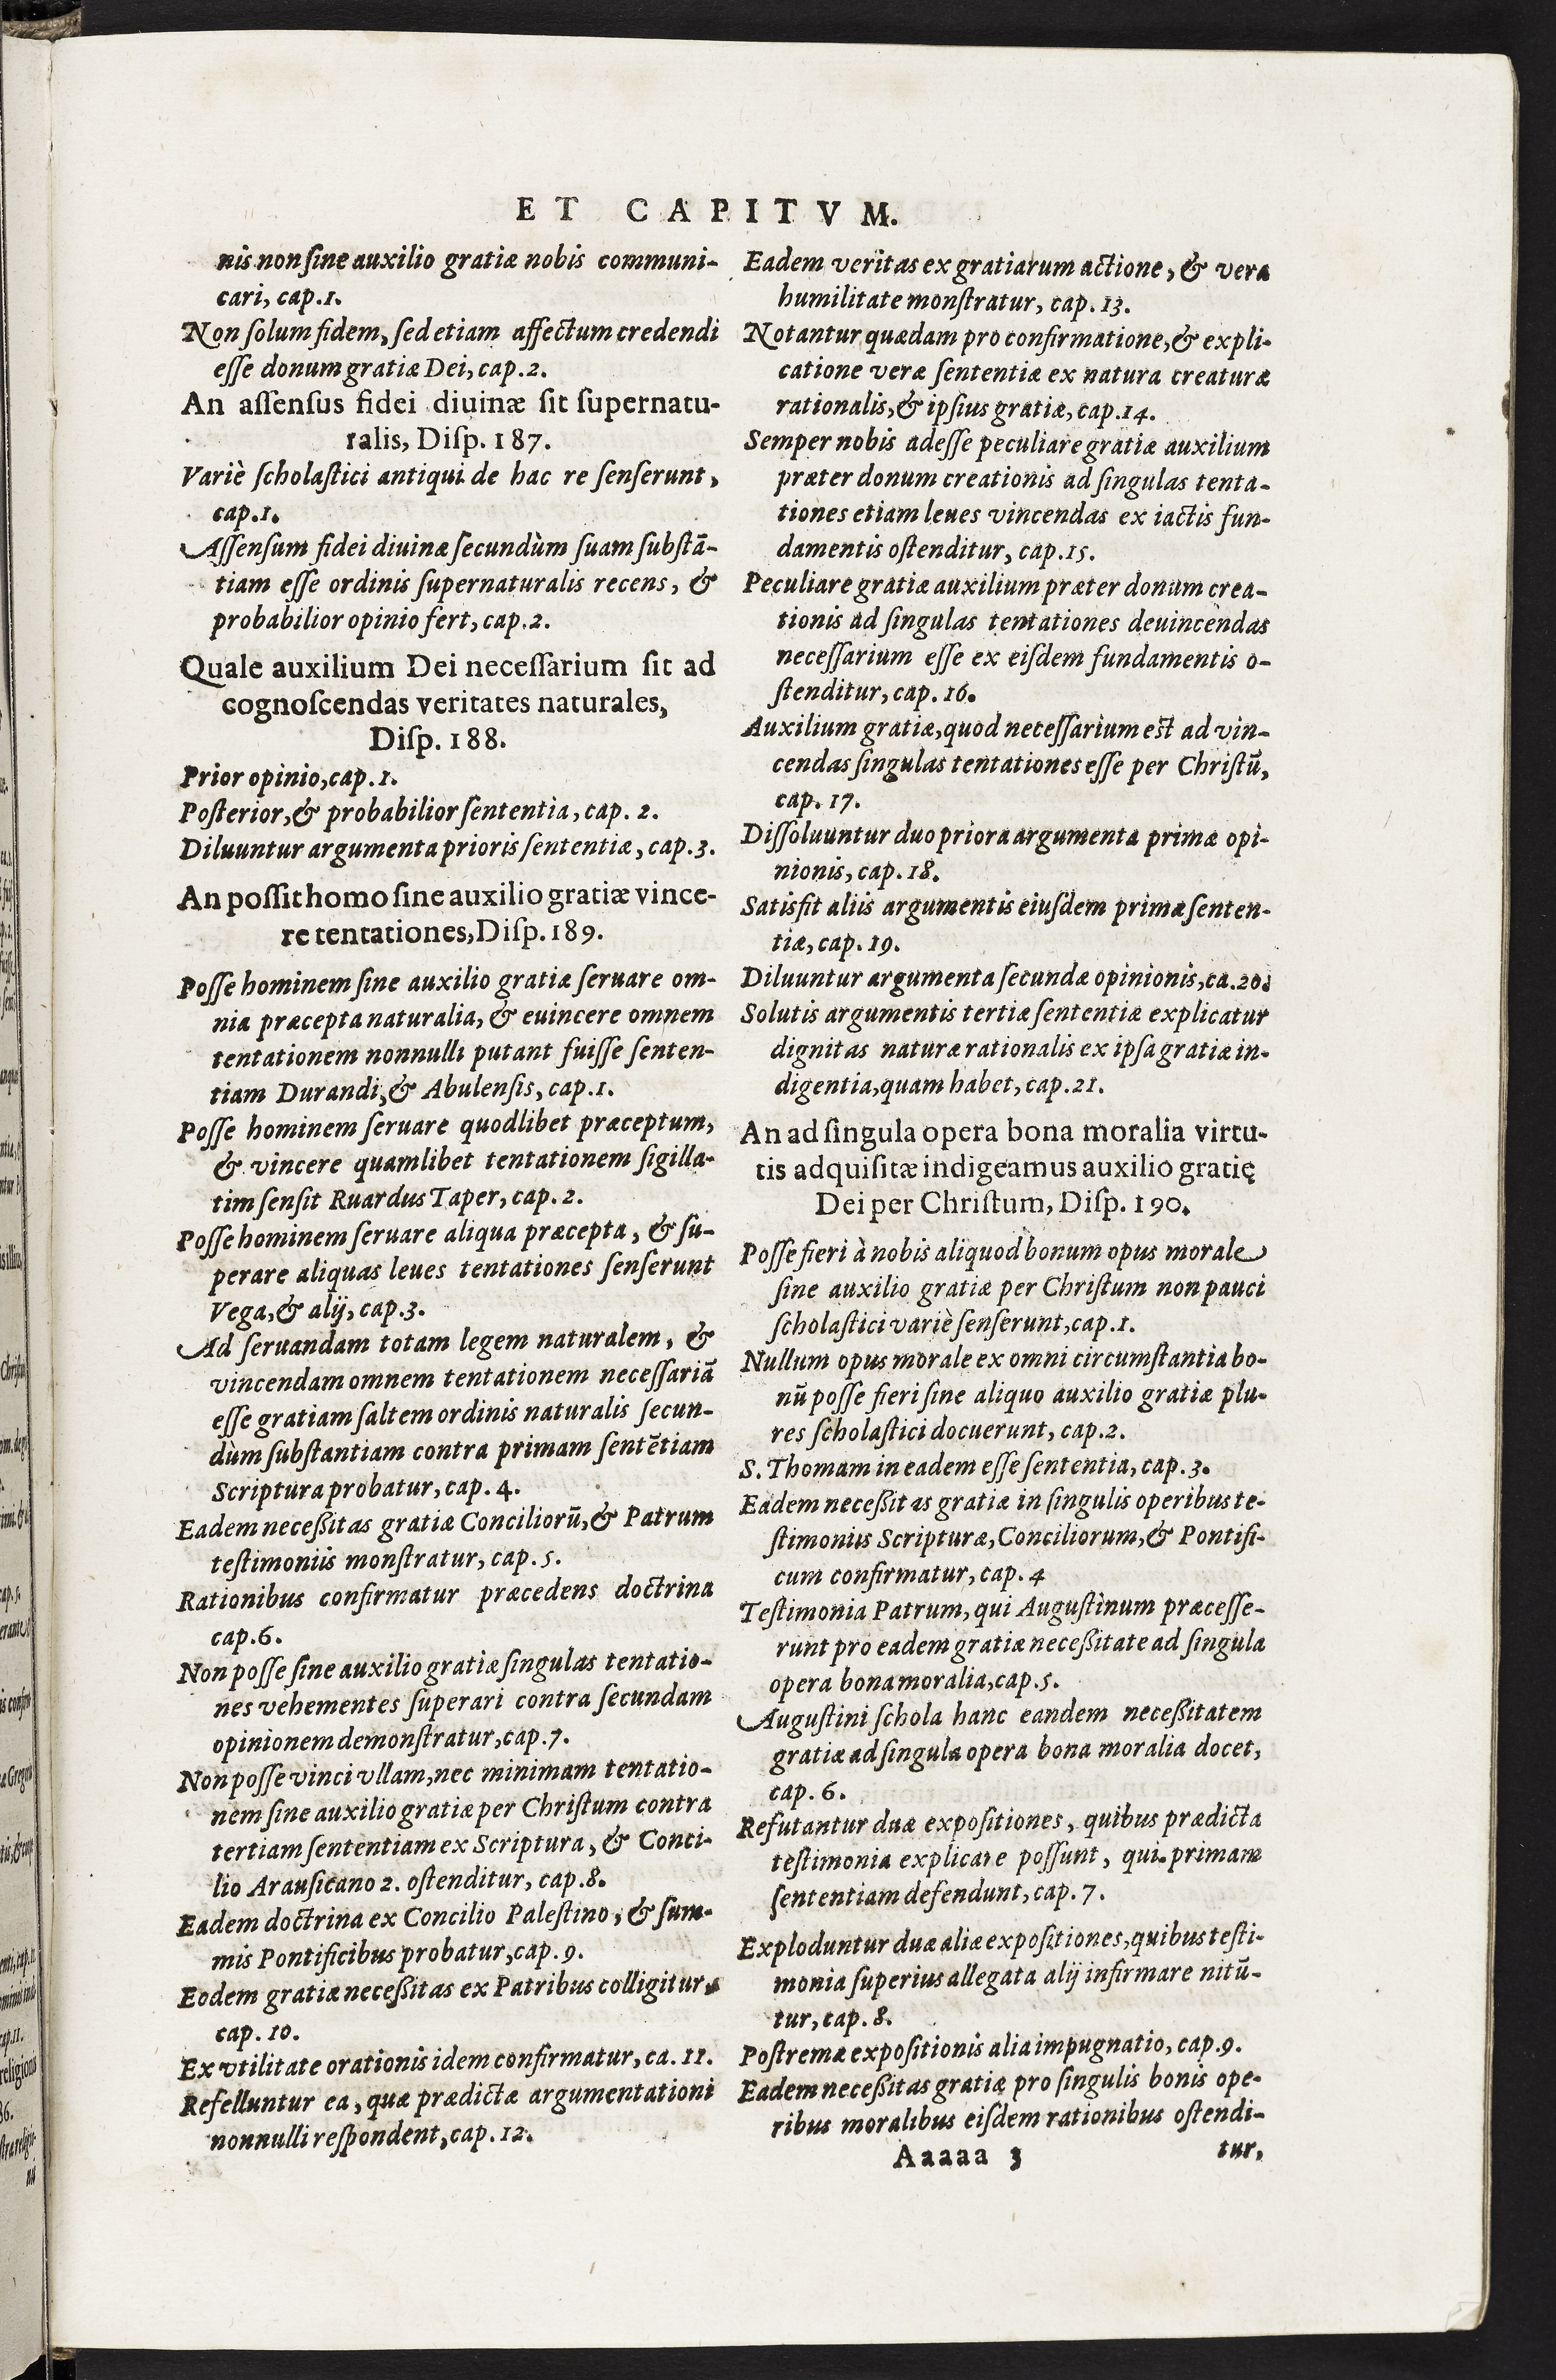 ET CAPITVM.
nis non ſine auxilio gratiæ nobis communi-
cari, cap.1.
Non ſolum fidem, ſed etiam affectum credendi
eſſe donum gratiæ Dei, cap.2.
An aſſenſus fidei diuinæ ſit ſupernatu-
ralis, Diſp. 187.
Variè ſcholaſtici antiqui de hac re ſenſerunt,
cap.1.
Aſſenſum fidei diuinæ ſecundùm ſuam ſubſtā-
tiam eſſe ordinis ſupernaturalis recens, &
probabilior opinio fert, cap.2.
Quale auxilium Dei neceſſarium ſit ad
cognoſcendas veritates naturales,
Diſp. 188.
Prior opinio, cap.1.
Poſterior, & probabilior ſententia, cap. 2.
Diluuntur argumenta prioris ſententiæ, cap.3.
An poſſit homo ſine auxilio gratiæ vince-
re tentationes, Diſp. 189.
Poſſe hominem ſine auxilio gratiæ ſeruare om-
nia præcepta naturalia, & euincere omnem
tentationem nonnulli putant fuiſſe ſenten-
tiam Durandi, & Abulenſis, cap.1.
Poſſe hominem ſeruare quodlibet præceptum,
& vincere quamlibet tentationem ſigilla-
tim ſenſit Ruardus Taper, cap.2.
Poſſe hominem ſeruare aliqua præcepta, & ſu-
perare aliquas leues tentationes ſenſerunt
Vega, & alij, cap.3.
Ad ſeruandam totam legem naturalem, &
vincendam omnem tentationem neceſſariā
eſſe gratiam ſaltem ordinis naturalis ſecun-
dùm ſubſtantiam contra primam ſentētiam
Scriptura probatur, cap. 4.
Eadem neceßitas gratiæ Conciliorū, & Patrum
teſtimoniis monſtratur, cap.5.
Rationibus confirmatur præcedens doctrina
cap.6.
Non poſſe ſine auxilio gratiæ ſingulas tentatio-
nes vehementes ſuperari contra ſecundam
opinionem demonſtratur, cap.7.
Non poſſe vinci vllam, nec minimam tentatio-
nem ſine auxilio gratiæ per Chriſtum contra
tertiam ſententiam ex Scriptura, & Conci-
lio Arauſicano 2. oſtenditur, cap.8.
Eadem doctrina ex Concilio Paleſtino, & ſum-
mis Pontificibus probatur, cap. 9.
Eodem gratiæ neceßitas ex Patribus colligitur,
cap. 10.
Ex vtilitate orationis idem confirmatur, ca. 11.
Refelluntur ea, quæ prædictæ argumentationi
nonnulli reſpondent, cap. 12.
Eadem veritas ex gratiarum actione, & vera
humilitate monſtratur, cap. 13.
Notantur quædam pro confirmatione, & expli-
catione veræ ſententiæ ex natura creaturæ
rationalis, & ipſius gratiæ, cap.14.
Semper nobis adeſſe peculiare gratiæ auxilium
præter donum creationis ad ſingulas tenta-
tiones etiam leues vincendas ex iactis fun-
damentis oſtenditur, cap.15.
Peculiare gratiæ auxilium præter donum crea-
tionis ad ſingulas tentationes deuincendas
neceſſarium eſſe ex eiſdem fundamentis o-
ſtenditur, cap. 16.
Auxilium gratiæ, quod neceſſarium eſt ad vin-
cendas ſingulas tentationes eſſe per Chriſtū,
cap. 17.
Diſſoluuntur duo priora argumenta primæ opi-
nionis, cap. 18.
Satisfit aliis argumentis eiuſdem primæ ſenten-
tiæ, cap. 19.
Diluuntur argumenta ſecundæ opinionis, ca.20.
Solutis argumentis tertiæ ſententiæ explicatur
dignitas naturæ rationalis ex ipſa gratiæ in-
digentia, quam habet, cap.21.
An ad ſingula opera bona moralia virtu-
tis adquiſitæ indigeamus auxilio gratię
Dei per Chriſtum, Diſp. 190.
Poſſe fieri à nobis aliquod bonum opus morale
ſine auxilio gratiæ per Chriſtum non pauci
ſcholaſtici variè ſenſerunt, cap.1.
Nullum opus morale ex omni circumſtantia bo-
nū poſſe fieri ſine aliquo auxilio gratiæ plu-
res ſcholaſtici docuerunt, cap.2.
S. Thomam in eadem eſſe ſententia, cap.3.
Eadem neceßitas gratiæ in ſingulis operibus te-
ſtimoniis Scripturæ, Conciliorum, & Pontifi-
cum confirmatur, cap. 4
Teſtimonia Patrum, qui Auguſtinum præceſſe-
runt pro eadem gratiæ neceßitate ad ſingula
opera bona moralia, cap.5.
Auguſtini ſchola hanc eandem neceßitatem
gratiæ ad ſingula opera bona moralia docet,
cap. 6.
Refutantur duæ expoſitiones, quibus prædicta
teſtimonia explicare poſſunt, qui primam
ſententiam defendunt, cap. 7.
Exploduntur duæ aliæ expoſitiones, quibus teſti-
monia ſuperius allegata alij infirmare nitū-
tur, cap. 8.
Poſtremæ expoſitionis alia impugnatio, cap.9.
Eadem neceßitas gratiæ pro ſingulis bonis ope-
ribus moralibus eiſdem rationibus oſtendi-
Aaaaa 3 tur,